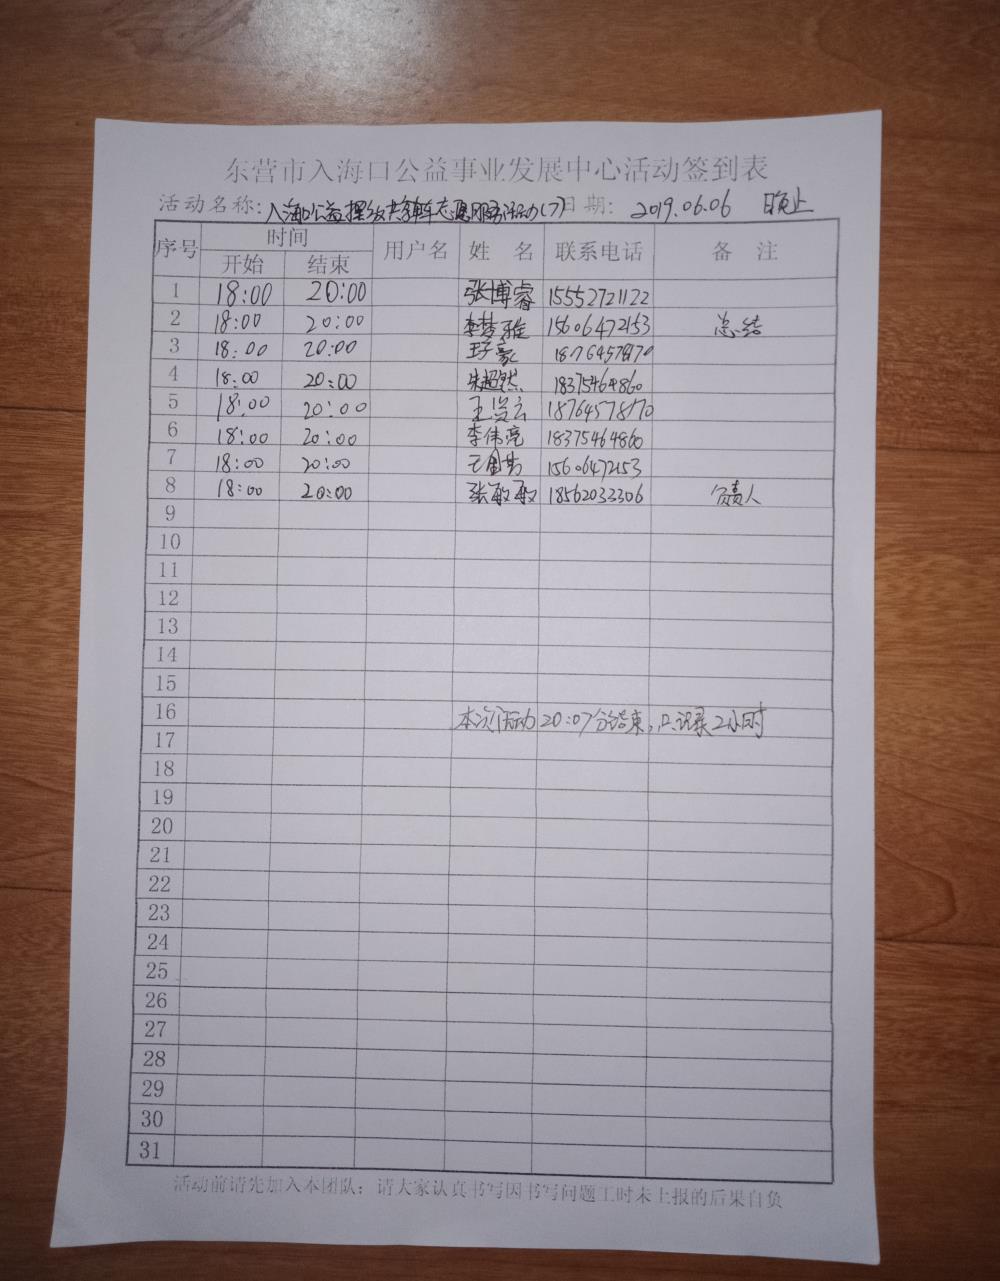 东营市入海口公益事业发展中心活动签到表
活动名称: 入海口公益摆放共享单车志愿服务活动(7) 日期: 2019.06.06 晚上
序号 时间 用户名 姓 名 联系电话 备 注
开始 结束
1 18:00 20:00 张博睿 15552721122
2 18:00 20:00 李梦雅 15606472153 总结
3 18:00 20:00 王子豪
4 18:00 20:00 朱超然 18375464860
5 18:00 20:00 王贤云 18764578170
6 18:00 20:00 李伟亮 18375464860
7 18:00 20:00 15606472153
8 18:00 20:00 张敏敏 18562033306 负责人
9
10
11
12
13
14
15
16 本次活动20:07分结束,只记录2小时
17
18
19
20
21
22
23
24
25
26
27
28
29
30
31
活动前请先加入本团队；请大家认真书写因书写问题工时未上报的后果自负